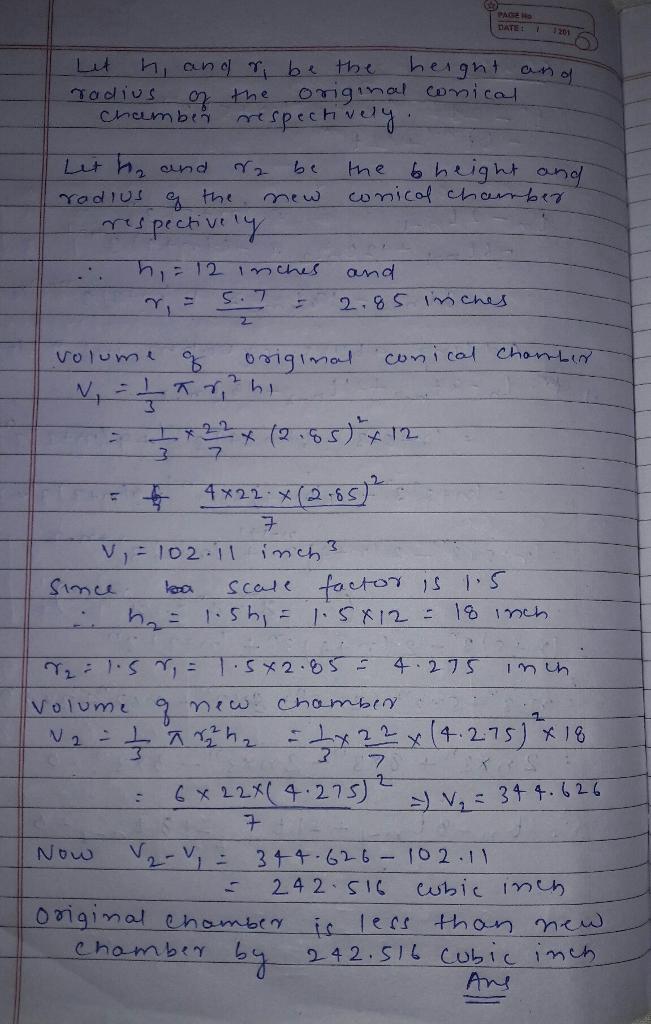 PAGE No
DATE: / /201
Let h₁ and r₁ be the height and
radius of the original conical
chamber respectively.
Let h₂ and r₂ be the height and
radius of the new conical chamber
respectively
∴ h₁ = 12 inches and
r₁ = 5.7/2 = 2.85 inches
volume of original conical chamber
V₁ = 1/3 π r₁² h₁
= 1/3 × 22/7 × (2.85)² × 12
= 4×22×(2.85)²/7
V₁ = 102.11 inch³
Since scale factor is 1.5
∴ h₂ = 1.5h₁ = 1.5×12 = 18 inch
r₂ = 1.5 r₁ = 1.5×2.85 = 4.275 inch
volume of new chamber
V₂ = 1/3 π r₂² h₂ = 1/3 × 22/7 × (4.275)² × 18
= 6×22×(4.275)²/7 ⇒ V₂ = 344.626
Now V₂-V₁ = 344.626 - 102.11
= 242.516 cubic inch
Original chamber is less than new
chamber by 242.516 cubic inch
Ans